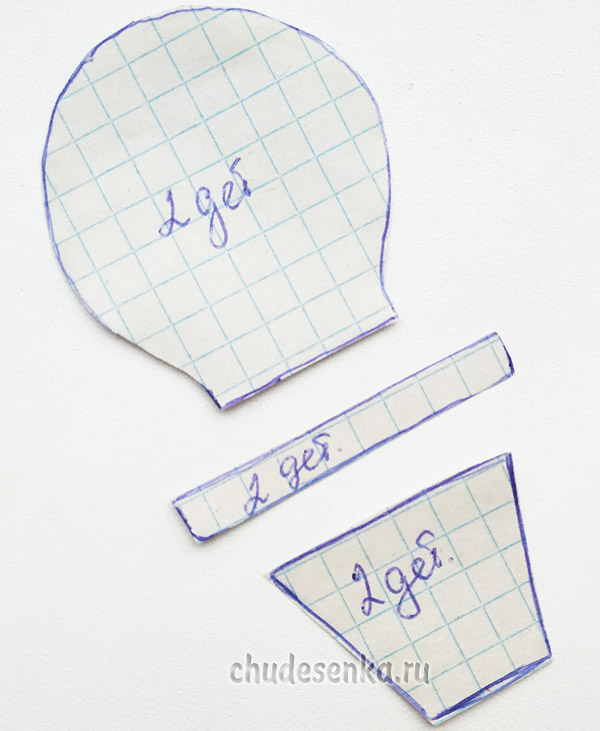 2 дет
2 дет.
2 дет.
chudesenka.ru